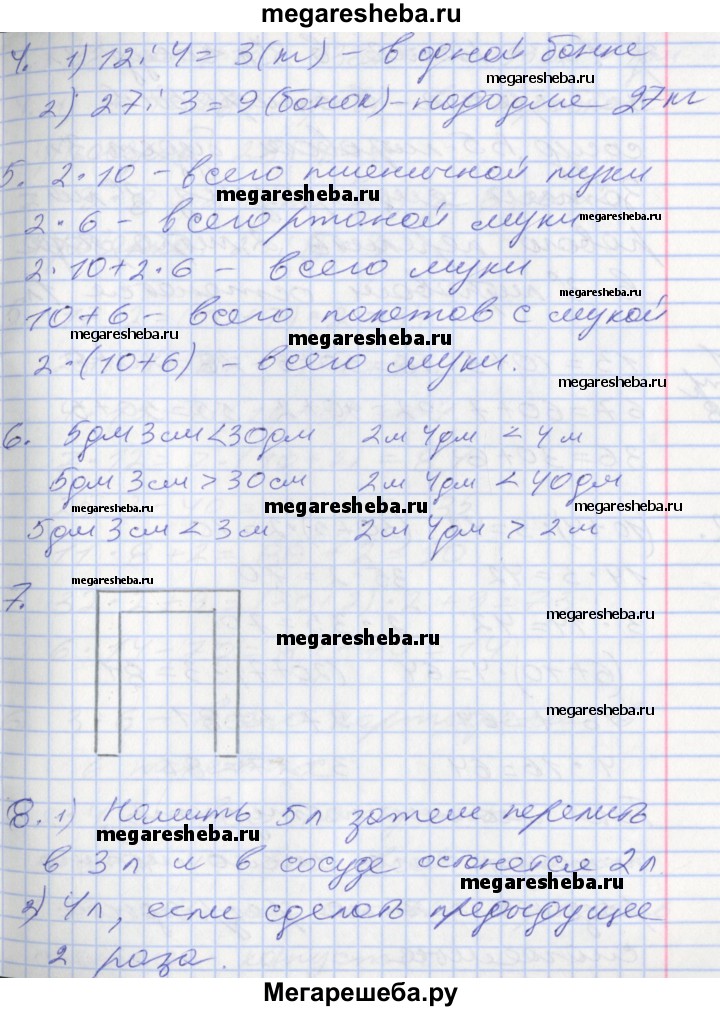 megaresheba.ru
4. 1) 12 : 4 = 3 (кг) – в одной банке
megaresheba.ru
2) 27 : 3 = 9 (банок) – надо для 27 кг
5. 2 · 10 – всего пшеничной муки
megaresheba.ru
2 · 6 – всего ржаной муки
megaresheba.ru
2 · 10 + 2 · 6 – всего муки
megaresheba.ru
10 + 6 – всего пакетов с мукой
megaresheba.ru
megaresheba.ru
2 · (10 + 6) – всего муки.
megaresheba.ru
6. 5дм 3см < 30дм 2м 4дм < 4м
5дм 3см > 30см 2м 4дм < 40дм
megaresheba.ru
5дм 3см < 3м 2м 4дм > 2м
7.
megaresheba.ru
megaresheba.ru
megaresheba.ru
megaresheba.ru
8. 1) Налить 5л затем перелить
megaresheba.ru
в 3л и в сосуде останется 2л.
megaresheba.ru
2) 4л, если сделать предыдущее
2 раза.
megaresheba.ru
Мегарешеба.ру